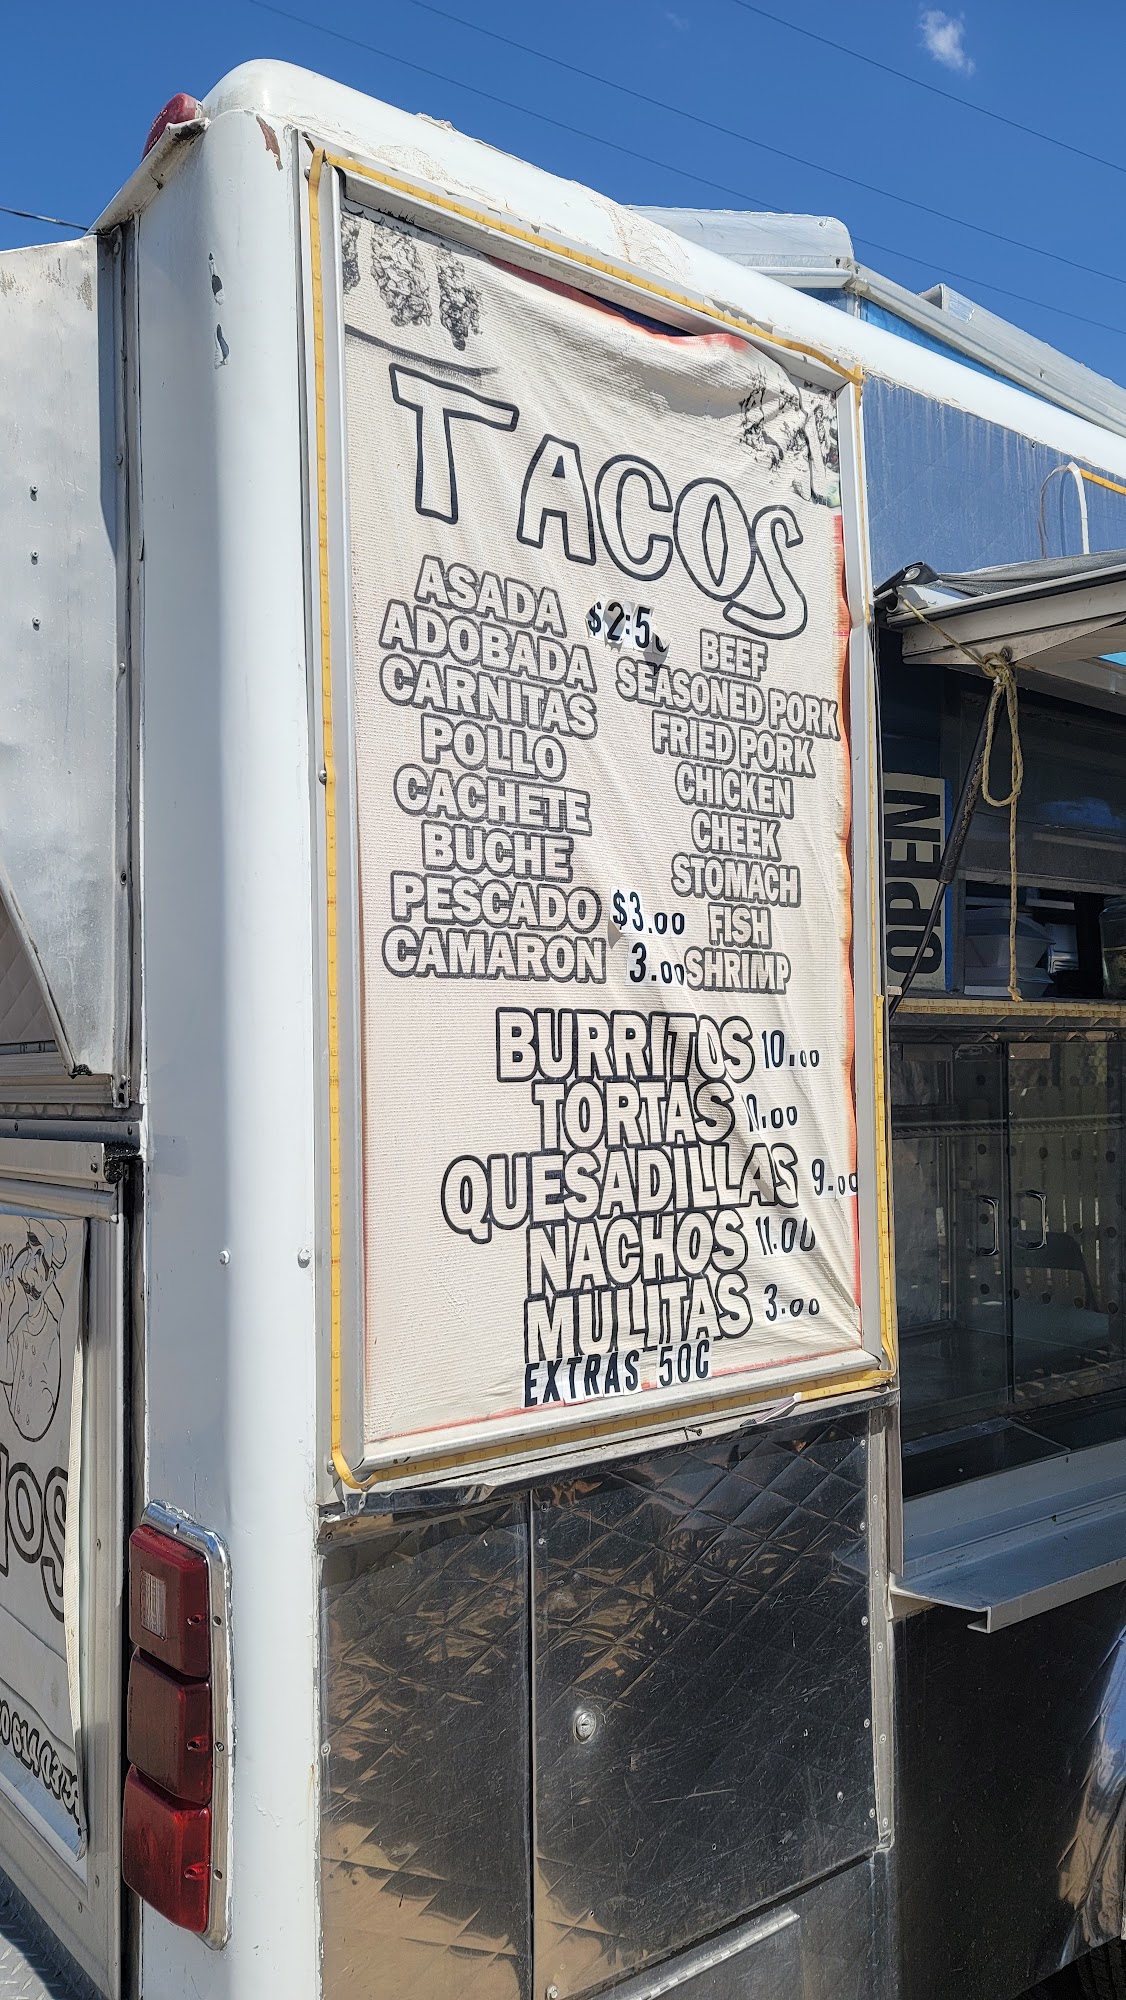 TACOS
ASADA $2.50 BEEF
ADOBADA SEASONED PORK
CARNITAS FRIED PORK
POLLO CHICKEN
CACHETE CHEEK
BUCHE STOMACH
PESCADO $3.00 FISH
CAMARON 3.00 SHRIMP
BURRITOS 10.00
TORTAS
QUESADILLAS 9.00
NACHOS 11.00
MULITAS 3.00
EXTRAS 50¢
OPEN